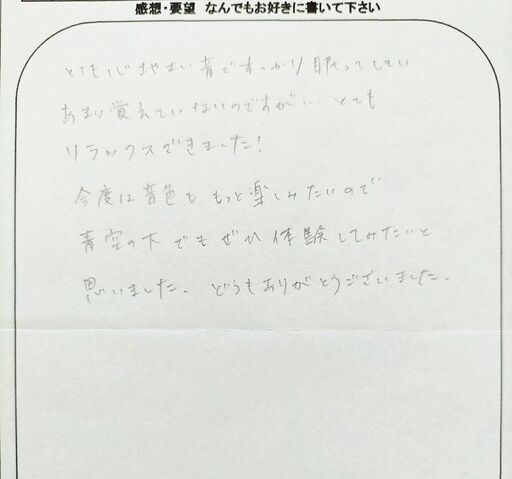 感想・要望 なんでもお好きに書いて下さい
とても心地よい音ですっかり眠ってしまい
あまり覚えていないのですが… とても
リラックスできました!
今度は音色も もっと楽しみたいので
青空の下でもぜひ体験してみたいと
思いました。どうもありがとうございました。